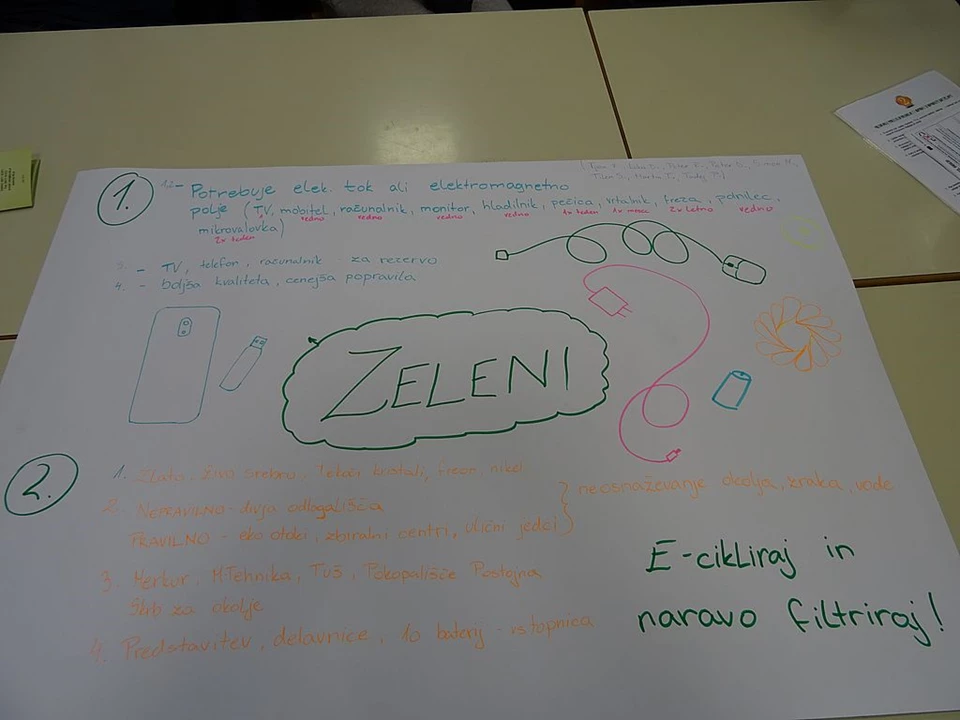 1.
1,2 - Potrebuje elek. tok ali elektromagnetno
polje (TV, mobitel, računalnik, monitor, hladilnik, pečica, vrtalnik, freza, polnilec,
vedno vedno vedno vedno 1x teden 1x mesec 2x letno vedno
mikrovalovka)
2x teden
3. - TV, telefon, računalnik - za rezervo
4. - boljša kvaliteta, cenejša popravila
ZELENI
2.
1. Zlato, živo srebro, tekoči kristali, freon, nikel
2. NEPRAVILNO - divja odlagališča
PRAVILNO - eko otoki, zbiralni centri, ulični jedci
} neosnaževanje okolja, zraka, vode
3. Merkur, MTehnika, Tuš, Pokopališče Postojna
Skrb za okolje
4. Predstavitev, delavnice, 10 baterij - vstopnica
E-cikliraj in
naravo filtriraj!